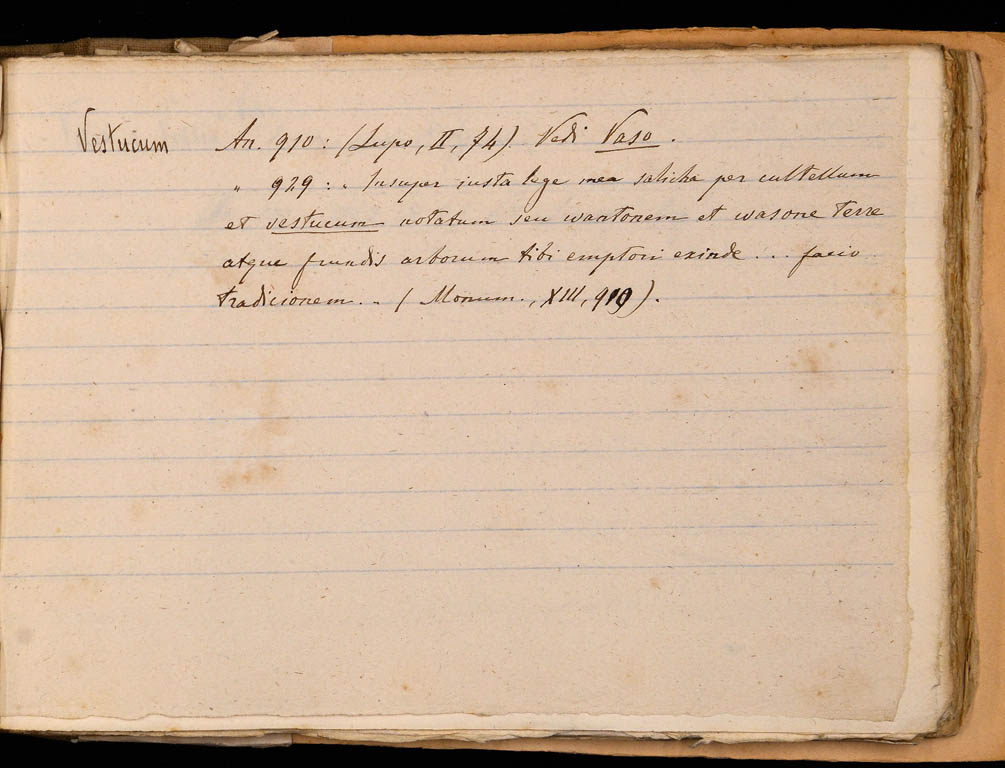 Vestucum An. 910: (Lupo, II, 74) Vedi Vaso.
„ 929: „ Insuper iusta lege mea salicha per cultellum
et vestucum notatum seu wantonem et wasone terre
atque frundis arborum tibi emptori exinde ... facio
tradicionem „ (Monum., XIII, 910).